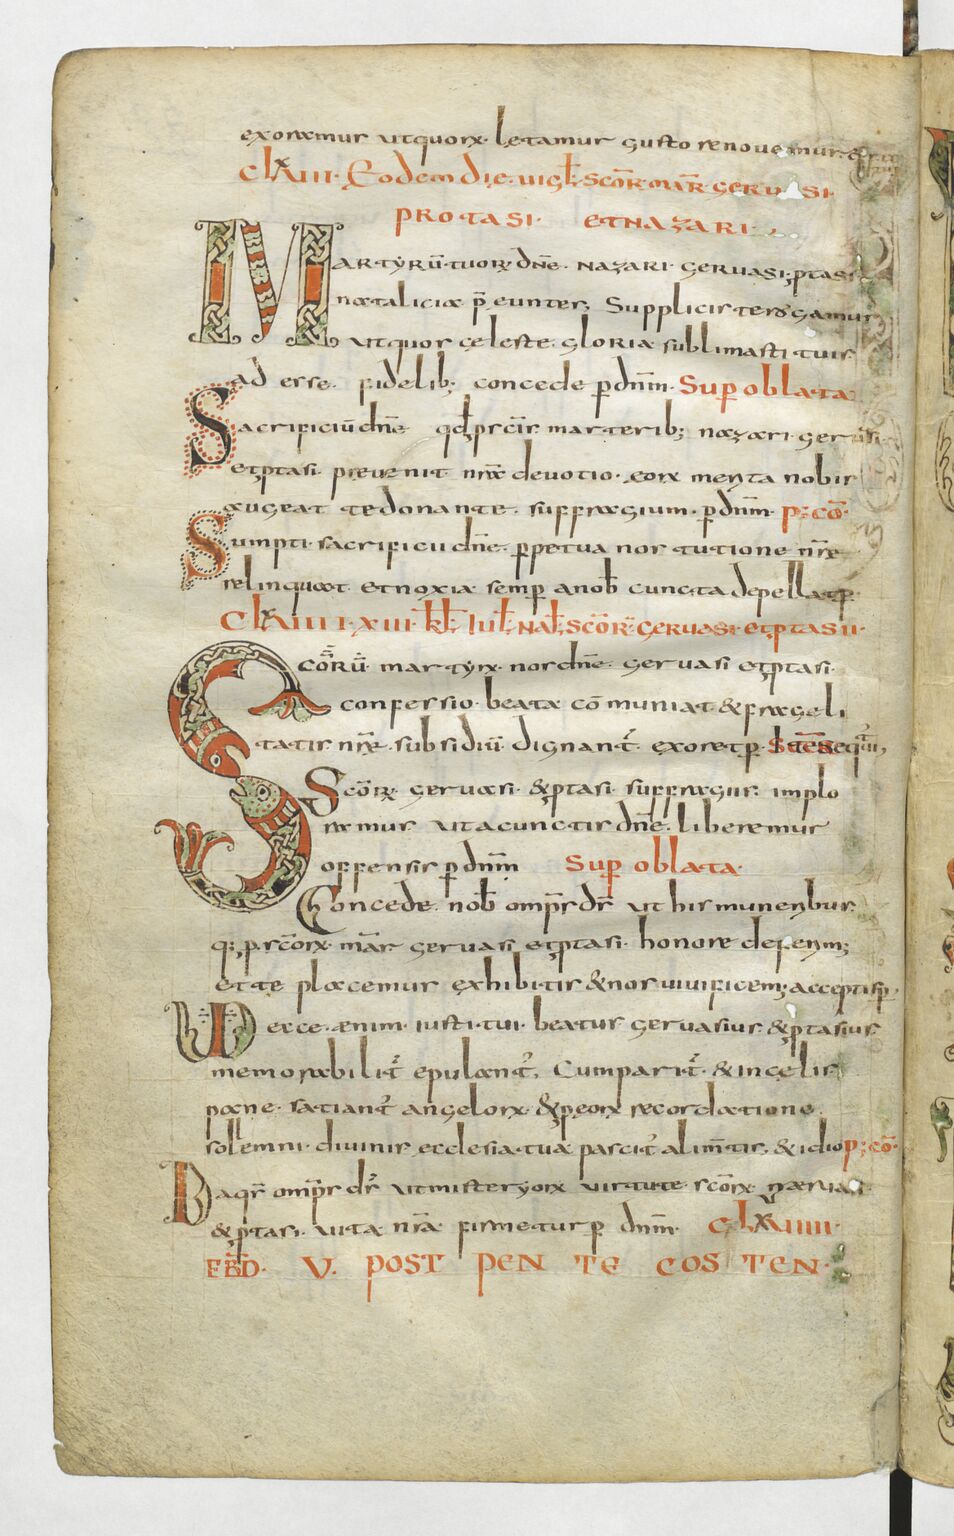 exoramur ut quorx· letamur gusto renouemur &
clxiii· Eodem die· uigl̄ scōr· mār· geruasi
protasi· et nazari·
Martyrū· tuorx· dn̄e· nazari geruasi; ꝓtasi
natalicia p̄ euntes; Supplicis te rogamus
ut quos celeste gloria sublimasti· tuis
ad esse fidelib; concede ꝑ dn̄m· Suꝑ oblata
Sacrificiū dn̄e qd̄ ꝓ scīs marterib; nazari· geruasi·
et ꝓtasi· preuenit nr̄ae deuotio· eorx merita nobis
augeat te donante suffragium· ꝑ dn̄m· p; cō·
Sumpti· sacrificii dn̄e ꝑpetua nos tutione nr̄ae
relinquat· et noxia semꝑ a nob̄ cuncta depellat ꝑ
clxiiii· xiii· kl̄ iul̄ nat̄ scōr̄· geruasi· et ꝓtasii·
Scōrū· martyrx· nos dn̄e· geruasi et ꝓtasi·
confessio· beata cōmuniat· & frageli
tatis nr̄ae· subsidiū dignant̄· exoret ꝑ·
Scōrx· geruasi· & ꝓtasi· suffragiis implo
ramur ut a cunctis dn̄e· liberemur
offensis ꝑ dn̄m Suꝑ oblata·
Concede nob̄ omp̄s ds̄ ut his muneribus
q; ꝓ scōrx· mār geruasi et ꝓtasi· honore deferim;
et te placemur exhibitis & nos uiuificem; acceptis ꝑ
UD ex ce· aenim· iusti· tui· beatus geruasius & ꝓtasius
memorabilit̄ epulant̄· Cum parit̄· & in celis
pane· satiant̄ angelorx· & ꝑ eorx recordatione
sollemni· diuinis ecclesia· tua pascit̄ alim̄tis· & idio p; cō·
Da qs̄ omp̄s ds̄ ut misteriorx uirtute· scōrx
& ꝓtasi· uita nr̄a firmetur ꝑ dn̄m· clxuiiii·
EBD· V· POST PEN TE COS TEN·